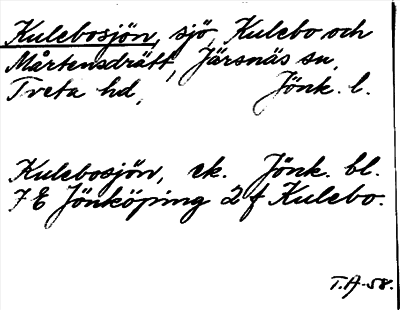 Kulebosjön, sjö, Kulebo och
Mårtensdrätt, Järsnäs sn,
Tveta hd, Jönk. l.
Kulebosjön, ek. Jönk. bl.
7E Jönköping 2f Kulebo.
T.A-58.